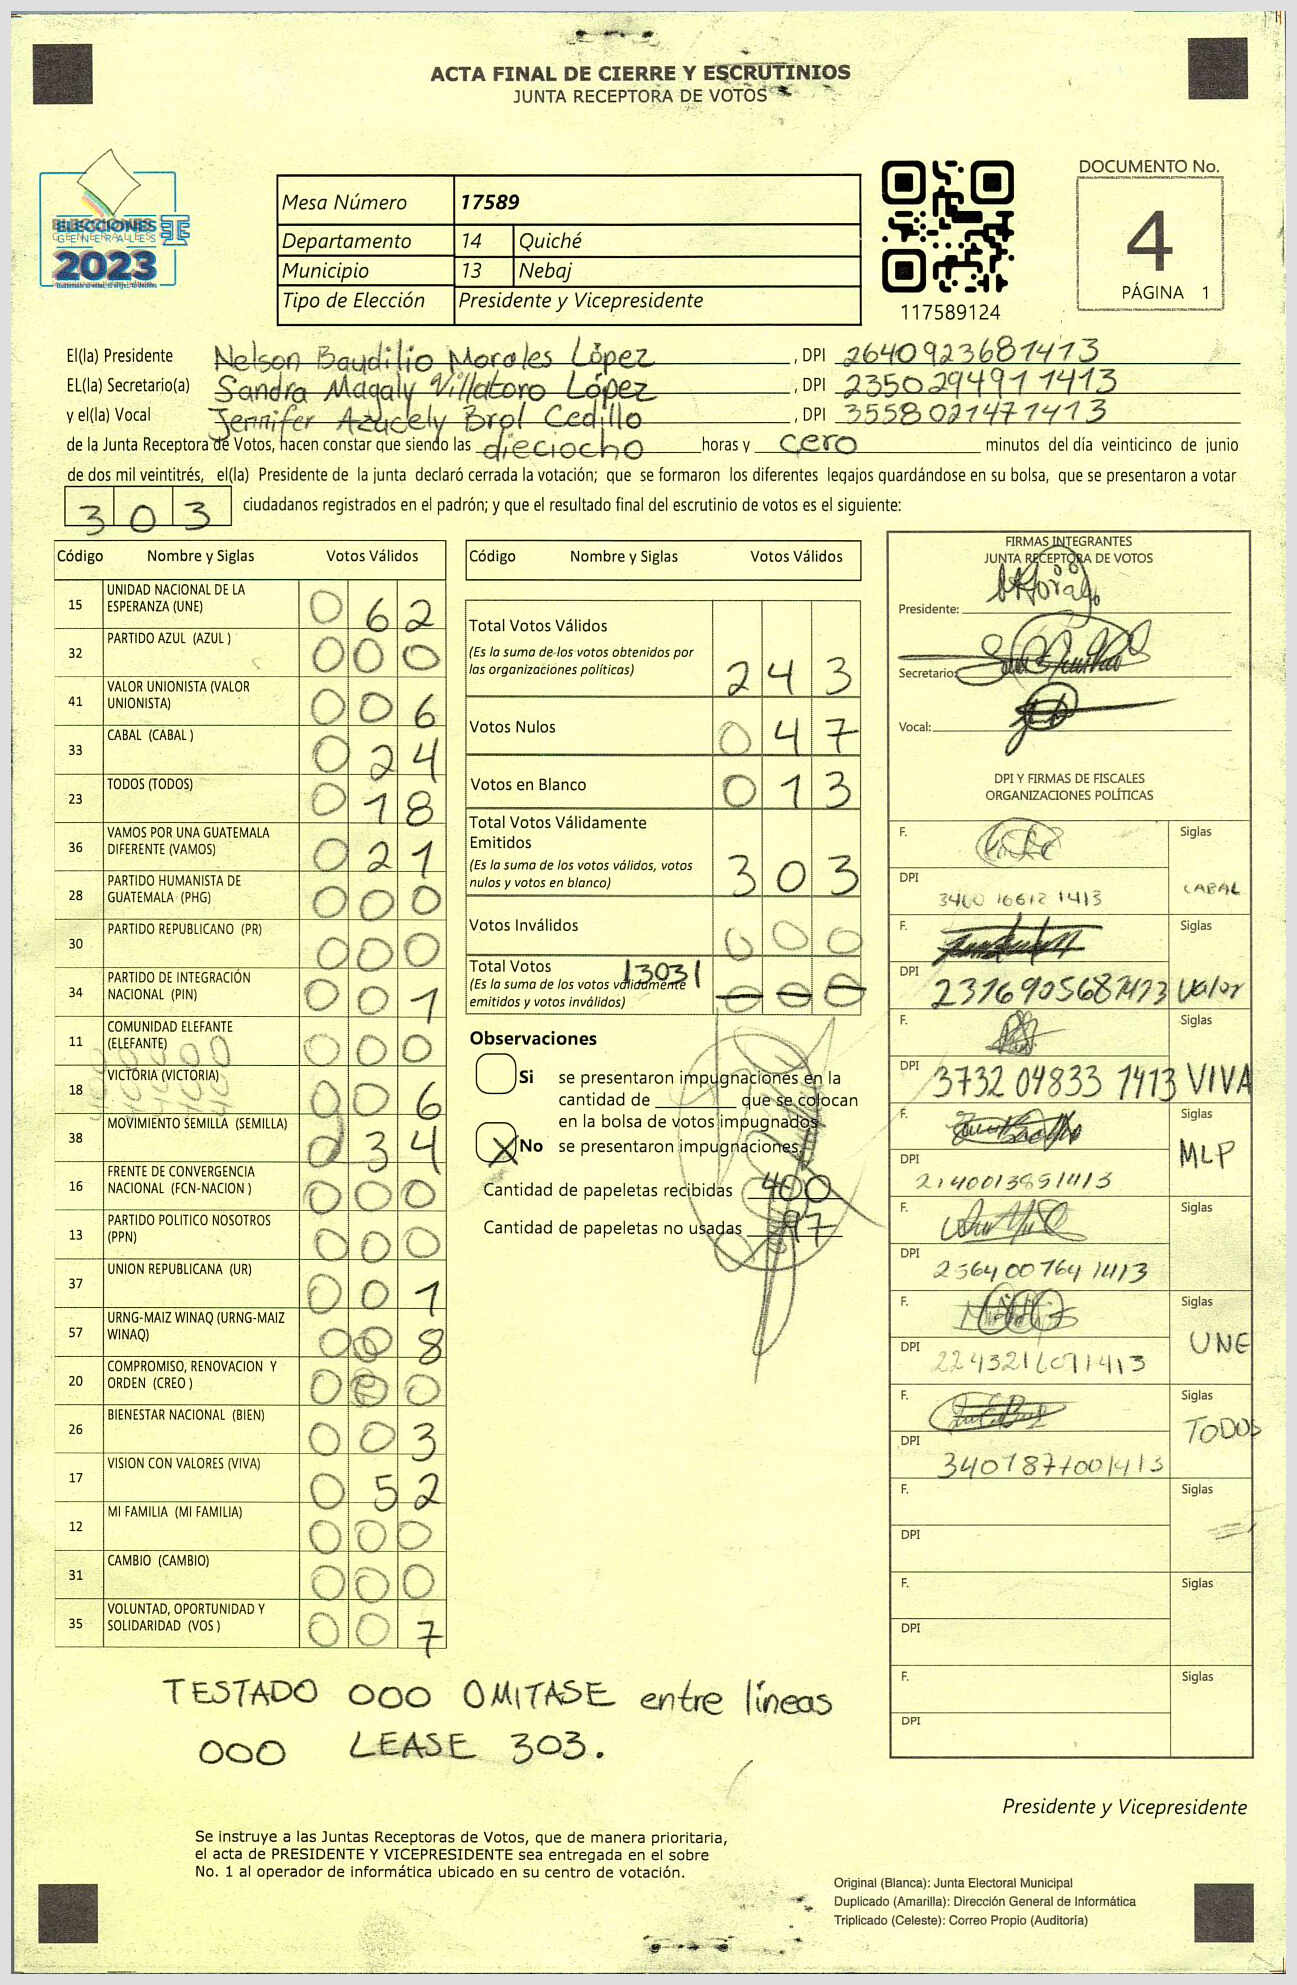 ACTA FINAL DE CIERRE Y ESCRUTINIOS
JUNTA RECEPTORA DE VOTOS
ELECCIONES
GENERALES
2023
Mesa Número 17589
Departamento 14 Quiché
Municipio 13 Nebaj
Tipo de Elección Presidente y Vicepresidente
117589124
DOCUMENTO No.
4
PÁGINA 1
El(la) Presidente Nelson Baudilio Morales López, DPI 2640923681413
EL(la) Secretario(a) Sandra Magaly Villatoro López, DPI 2350294911413
y el(la) Vocal Jennifer Azucely Brol Cedillo, DPI 3558021471413
de la Junta Receptora de Votos, hacen constar que siendo las dieciocho horas y cero minutos del día veinticinco de junio
de dos mil veintitrés, el(la) Presidente de la junta declaró cerrada la votación; que se formaron los diferentes legajos guardándose en su bolsa, que se presentaron a votar
303 ciudadanos registrados en el padrón; y que el resultado final del escrutinio de votos es el siguiente:
Código Nombre y Siglas Votos Válidos
15 UNIDAD NACIONAL DE LA ESPERANZA (UNE) 062
32 PARTIDO AZUL (AZUL ) 000
41 VALOR UNIONISTA (VALOR UNIONISTA) 006
33 CABAL (CABAL ) 024
23 TODOS (TODOS) 018
36 VAMOS POR UNA GUATEMALA DIFERENTE (VAMOS) 021
28 PARTIDO HUMANISTA DE GUATEMALA (PHG) 000
30 PARTIDO REPUBLICANO (PR) 000
34 PARTIDO DE INTEGRACIÓN NACIONAL (PIN) 001
11 COMUNIDAD ELEFANTE (ELEFANTE) 000
18 VICTORIA (VICTORIA) 006
38 MOVIMIENTO SEMILLA (SEMILLA) 034
16 FRENTE DE CONVERGENCIA NACIONAL (FCN-NACION ) 000
13 PARTIDO POLITICO NOSOTROS (PPN) 000
37 UNION REPUBLICANA (UR) 001
57 URNG-MAIZ WINAQ (URNG-MAIZ WINAQ) 008
20 COMPROMISO, RENOVACION Y ORDEN (CREO ) 000
26 BIENESTAR NACIONAL (BIEN) 003
17 VISION CON VALORES (VIVA) 052
12 MI FAMILIA (MI FAMILIA) 000
31 CAMBIO (CAMBIO) 000
35 VOLUNTAD, OPORTUNIDAD Y SOLIDARIDAD (VOS ) 007
Código Nombre y Siglas Votos Válidos
Total Votos Válidos 243
(Es la suma de los votos obtenidos por
las organizaciones políticas)
Votos Nulos 047
Votos en Blanco 013
Total Votos Válidamente
Emitidos 303
(Es la suma de los votos válidos, votos
nulos y votos en blanco)
Votos Inválidos 000
Total Votos 13031 000
(Es la suma de los votos válidamente
emitidos y votos inválidos)
Observaciones
Si se presentaron impugnaciones en la
cantidad de ________ que se colocan
en la bolsa de votos impugnados
X No se presentaron impugnaciones
Cantidad de papeletas recibidas 400
Cantidad de papeletas no usadas 97
FIRMAS INTEGRANTES
JUNTA RECEPTORA DE VOTOS
Presidente:
Secretario:
Vocal:
DPI Y FIRMAS DE FISCALES
ORGANIZACIONES POLÍTICAS
F. Siglas
DPI 3460 16612 1413 CABAL
F. Siglas
DPI 2376905681413 Valor
F. Siglas
DPI 3732 04833 1413 VIVA
F. Siglas
DPI 2140013851413 MLP
F. Siglas
DPI 2564007641413
F. Siglas
DPI UNE
F. Siglas
DPI TODOS
F. Siglas
DPI
F. Siglas
DPI
F. Siglas
DPI
TESTADO 000 OMITASE entre líneas
000 LEASE 303.
Presidente y Vicepresidente
Se instruye a las Juntas Receptoras de Votos, que de manera prioritaria,
el acta de PRESIDENTE Y VICEPRESIDENTE sea entregada en el sobre
No. 1 al operador de informática ubicado en su centro de votación.
Original (Blanca): Junta Electoral Municipal
Duplicado (Amarilla): Dirección General de Informática
Triplicado (Celeste): Correo Propio (Auditoría)